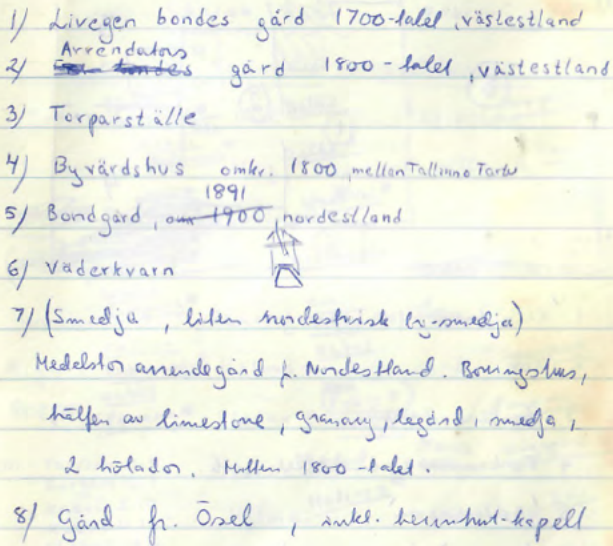 1/ Livegen bondes gård 1700-talet, västestland
Arrendators
2/ gård 1800-talet, västestland
3/ Torparställe
4/ Byvärdshus omkr. 1800, mellan Tallinn o Tartu
1891
5/ Bondgård, omkr 1900, nordestland
6/ Väderkvarn
7/ (Smedja, liten nordestnisk by-smedja)
Medelstor arrendegård fr. Nordestland. Boningshus,
hälften av limestone, granary, lagård, smedja,
2 hölador. Mitten 1800-talet.
8/ Gård fr. Ösel, inkl. herrnhut-kapell